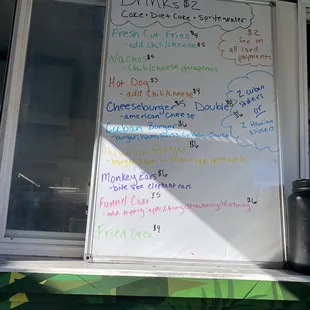 Drinks $2
Coke - Diet Coke - Sprite - Water
Fresh Cut Fries $4
- add chili/cheese $5
$2
fee on
all card
payments
Nachos $6
- chili/cheese/jalapenos
Hot Dog $3
- add chili $4
2 Cuban
sliders
or
2 Hawaiian
sliders
Cheeseburger $5 Double $6
- american cheese
Cuban Burger $6
Burger $6
Monkey Ears $6
- bite size elephant ears
Funnel Cake $5
$6
Fried Oreo $4